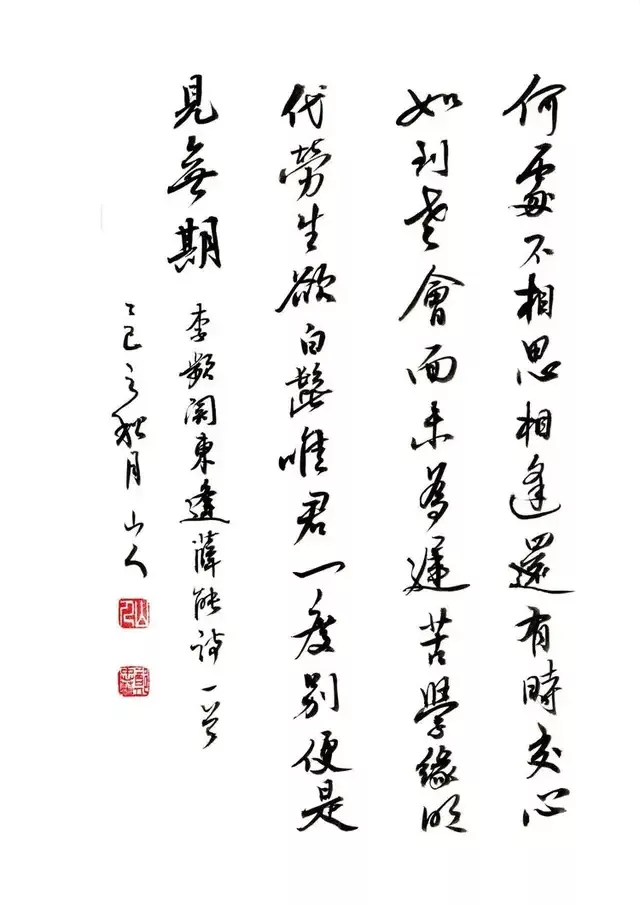 何處不相思相逢還有時交心
如到老會面未為遲苦學緣明
代勞生欲白髭唯君一度別便是
見無期
李頻関東逢薛能詩一首
乙巳之秋月山人
山人